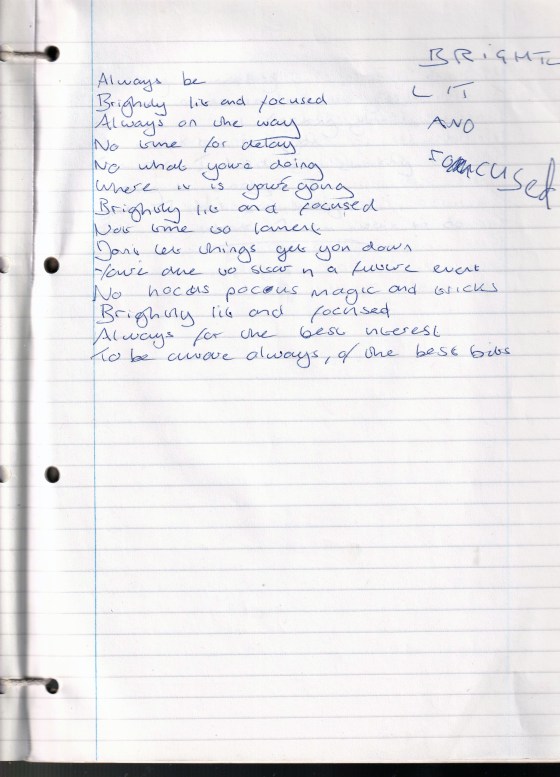 BRIGHTL
LIT
AND
focused
Always be
Brightly lit and focused
Always on the way
No time for delay
No what you're doing
Where it is you're going
Brightly lit and focused
Not time to lament
Dont let things get you down
You're due to star n a future event
No hocus pocous magic and tricks
Brightly lit and focused
Always for the best nterest
To be aware always, of the best bits